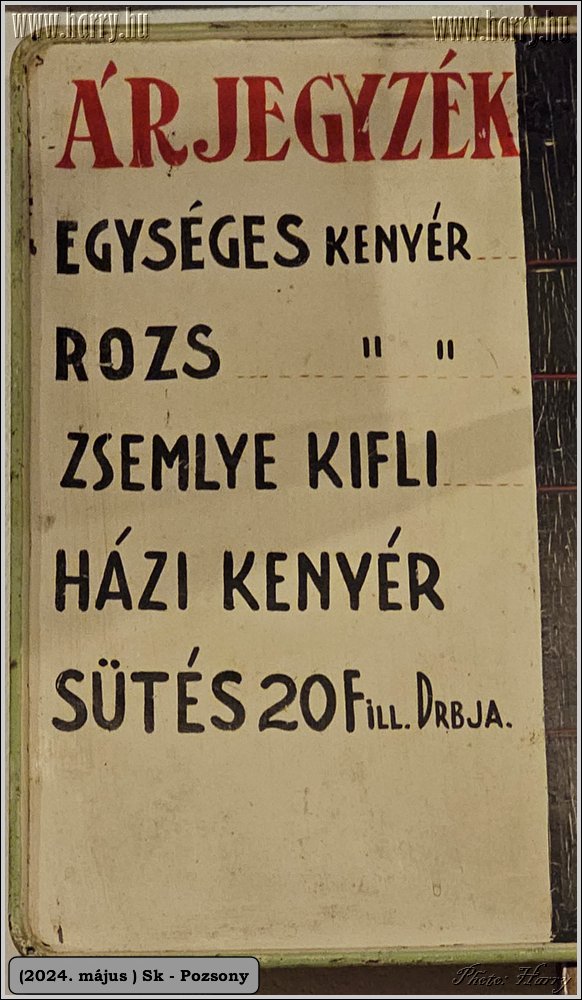 www.harry.hu www.harry.hu
ÁRJEGYZÉK
EGYSÉGES KENYÉR
ROZS " "
ZSEMLYE KIFLI
HÁZI KENYÉR
SÜTÉS 20 FILL. DRBJA.
(2024. május ) Sk - Pozsony
Photo: Harry